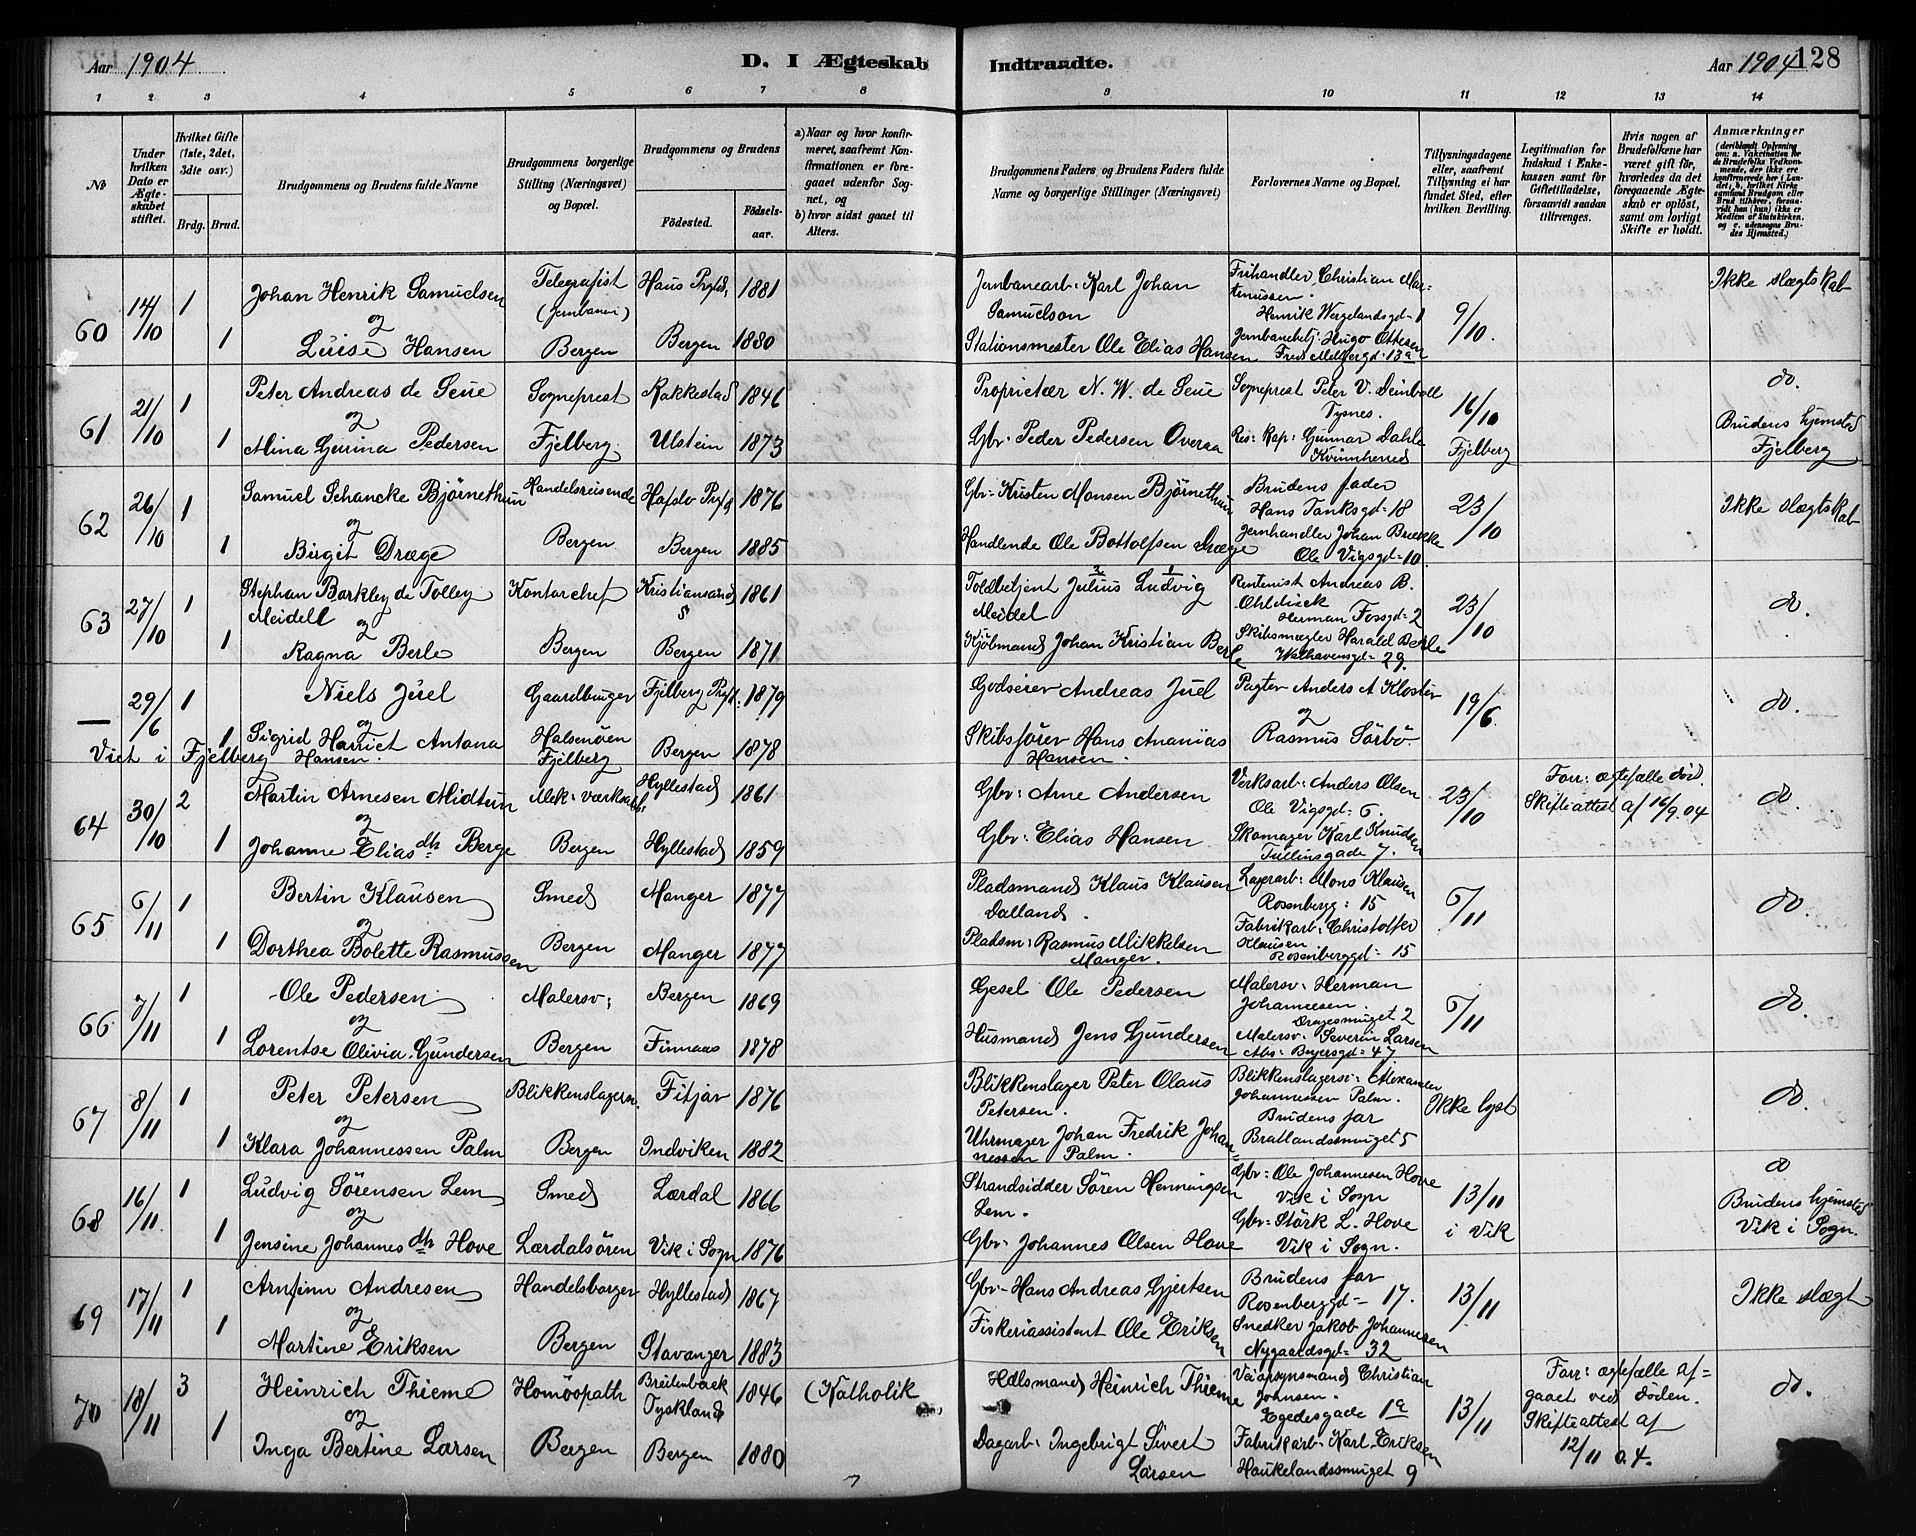 Aar 1904
D. I Ægteskab Indtraadte.
Aar 1904 128
1 2 3 4 5 6 7 8 9 10 11 12 13 14
No
Under hvilken Dato er Ægteskabet stiftet.
Hvilket Gifte (1ste, 2det, 3die osv.)
Brdg. Brud.
Brudgommens og Brudens fulde Navne
Brudgommens borgerlige Stilling (Næringsvei) og Bopæl.
Brudgommens og Brudens
Födested.
Födselsaar.
a) Naar og hvor konfirmeret, saafremt Konfirmationen er foregaaet udenfor Sognet, og
b) hvor sidst gaaet til Alters.
Brudgommens Faders og Brudens Faders fulde Navne og borgerlige Stillinger (Næringsvei)
Forlovernes Navne og Bopæl.
Tillysningsdagene eller, saafremt Tillysning ei har fundet Sted, efter hvilken Bevilling.
Legitimation for Indskud i Enkekassen samt for Giftetilladelse, forsaavidt saadan tiltrænges.
Hvis nogen af Brudefolkene har været gift för, hvorledes da det foregaaende Ægteskab er oplöst, samt om lovligt Skifte er holdt.
Anmærkninger (deriblandt Oplysning om: a. Vakcination for de Brudefolks Vedkommende, der ikke ere konfirmerede her i Landet; b. hvilket Kirkesamfund Brudgom eller Brud tilhörer, forsaavidt han (hun) ikke er Medlem af Statskirken, og c. udensogns Brudes Hjemsted.)
60 14/10 1 Johan Henrik Samuelsen Telegrafist (Jernbanen) Haus Prgld. 1881 Jernbanearb. Karl Johan Samuelson Frihandler Christian Martinussen. Henrik Wergelandsgd. 1 9/10. Ikke slægtskab
og
1 Luise Hansen Bergen Bergen 1880 Stationsmester Ole Elias Hansen Jernbanebetj. Hugo Ottesen Fred. Meltzergd. 13a
61 21/10 1 Peter Andreas de Seue Sogneprest Rakkestad 1846 Proprietær N. W. de Seue Sogneprest Peter V. Deinboll Tysnes. 16/10 Fjelberg do.
og
1 Mina Gurina Pedersen Fjelberg Ulstein 1873 Gbr. Peder Pedersen Overaa Res. Kap. Gunnar Dahle Kvinnherred Brudens hjemsted Fjelberg
62 26/10 1 Samuel Schancke Björnethun Handelsreisende Hafslo Prgld 1876 Gbr. Kristen Monsen Björnethun Brudens fader Hans Tanksgd. 18 23/10 Ikke slægtskab
og
1 Birgit Dræge Bergen Bergen 1885 Handlende Ole Bottolfsen Dræge Jernhandler Johan Brække Ole Vigsgd. 10.
63 27/10 1 Stephan Barkley de Tolley Meidell Kontorchef Kristiansand S 1861 Toldbetjent Julius Ludvig Meidel Rentenist Andreas B. Ohldieck Herman Fossgd. 2 23/10 do.
og
1 Ragna Berle Bergen Bergen 1871 Kjöbmand Johan Kristian Berle Skibsmægler Harald Berle Welhavensgd. 29.
— 29/6 1 Niels Juel Gaardbruger Fjelberg Prgld. 1879 Godseier Andreas Juel Pagter Anders A Kloster 19/6. do.
og
1 Sigrid Harriet Antona Hansen. Halsenöen Fjelberg Bergen 1878 Skibsförer Hans Ananias Hansen. og Rasmus Sörbö.
Viet i Fjelberg
64 30/10 2 Martin Arnesen Midtun Mek. værksarb. Hyllestad 1861 Gbr. Arne Andersen Verksarb. Anders Olsen Ole Vigsgd. 6. 23/10 Forr. ægtefælle död Skifteattest af 16/9. 04 do.
og
1 Johanne Eliasdh Berge Bergen Hyllestad 1859 Gbr. Elias Hansen Skomager Karl Knudsen Tullinsgade 7.
65 6/11 1 Bertin Klausen Smed Manger 1877 Pladsmand Klaus Klausen Dalland. Lagerarb. Mons Klausen Rosenbergg. 15 6/11 do.
og
1 Dorthea Bolette Rasmussen Bergen Manger 1877 Pladsm. Rasmus Mikkelsen Manger. Fabrikarb. Christoffer Klausen Rosenberggd. 15
66 7/11 1 Ole Pedersen Malersv. Bergen 1869 Gesel Ole Pedersen Malersv. Herman Johannesen. Dragesmuget 2 6/11 do.
og
1 Lorentse Olivia Gundersen Bergen Finnaas 1878 Husmand Jens Gundersen Malersv. Severin Larsen Abs. Beyersgd. 47
67 8/11 1 Peter Petersen Blikkenslagersv. Fitjar 1876 Blikkenslager Peter Olaus Petersen. Blikkenslagersv. Alexander Johannessen Palm. Ikke lyst do.
og
1 Klara Johannessen Palm Bergen Indviken 1882 Uhrmager Johan Fredrik Johannessen Palm. Brudens far Bratlandssmuget 5
68 16/11. 1 Ludvig Sörensen Lem Smed Lærdal 1866 Strandsidder Sören Henningsen Lem. Gbr. Ole Johannesen Hove Vik i Sogn 13/11 i Vik do
og
1 Jensine Johannesdh Hove Lærdalsören Vik i Sogn 1876 Gbr. Johannes Olsen Hove Gbr. Störk L. Hove Vik i Sogn. Brudens hjemsted Vik i Sogn.
69 17/11 1 Arnfinn Andresen Handelsborger Hyllestad 1867 Gbr. Hans Andreas Gjertsen Brudens far Rosenberggd. 17. 13/11 Ikke slægt
og
1 Martine Eriksen Bergen Stavanger 1883 Fiskeriassistent Ole Eriksen Snedker Jakob Johannesen Nygaardsgd. 32
70 18/11 3 Heinrich Thieme Homöopath Breitenback Tyskland 1846 (Katholik Hdlsmand Heinrich Thieme Veiopsynsmand Christian Johnsen. Egedesgade 1a 13/11 Forr. ægtefælle afgaaet ved döden. Skifteattest af 12/11 04. do.
og
1 Inga Bertine Larsen Bergen Bergen 1880 Dagarb. Ingebrigt Sivert Larsen Fabrikarb. Karl Eriksen Haukelandssmuget 9